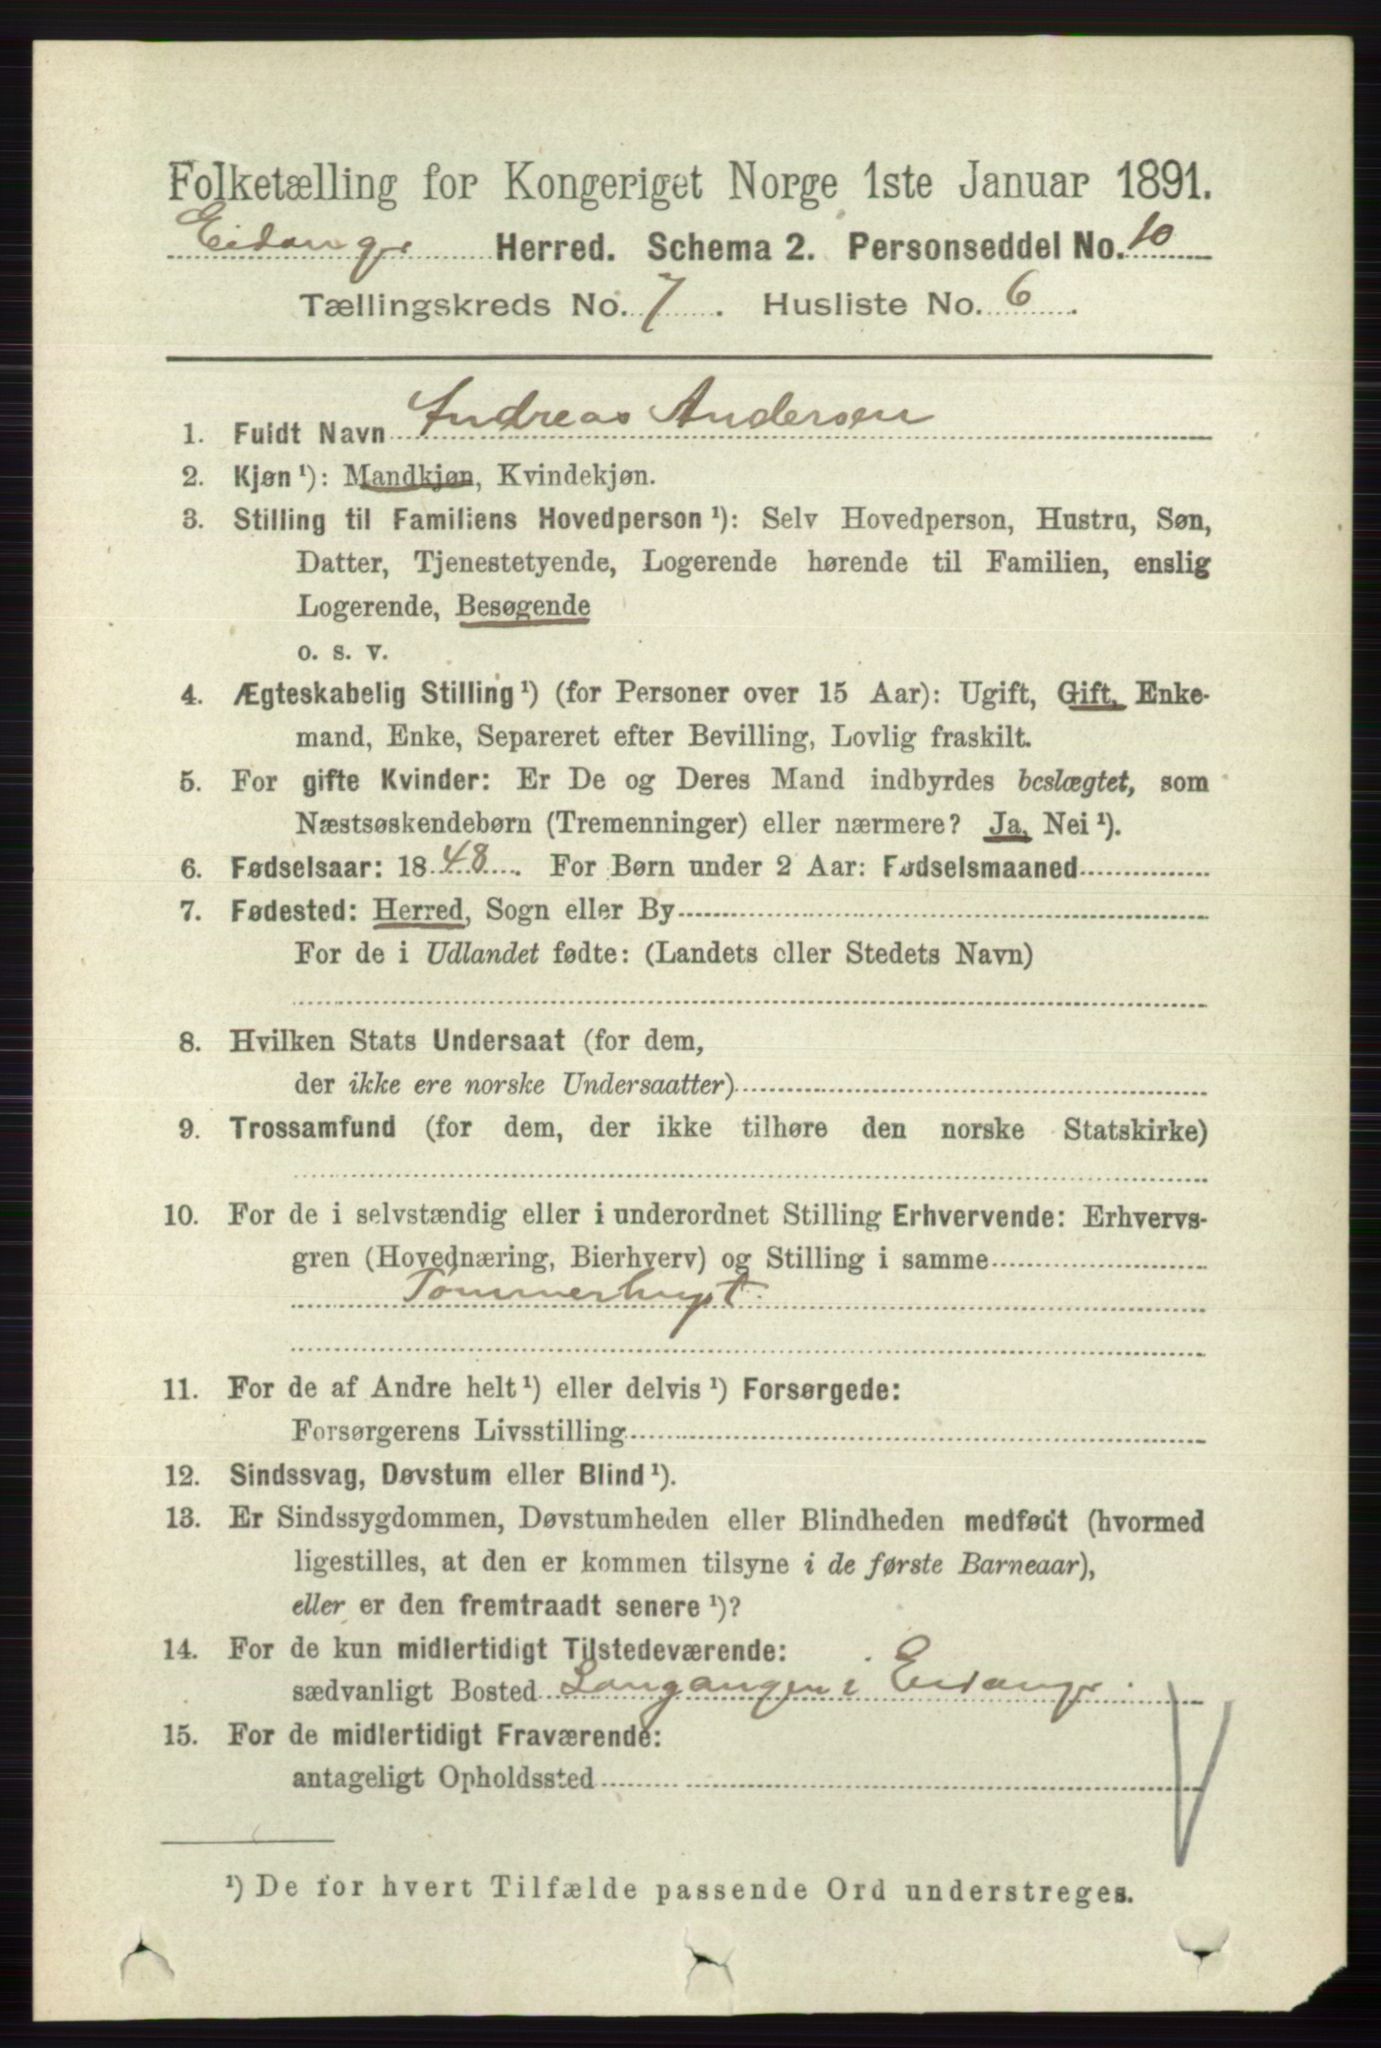 Folketælling for Kongeriget Norge 1ste Januar 1891.
Eidanger Herred. Schema 2. Personseddel No. 10
Tællingskreds No. 7. Husliste No. 6.
1. Fuldt Navn Andreas Andersen
2. Kjøn¹): Mandkjøn, Kvindekjøn.
3. Stilling til Familiens Hovedperson¹): Selv Hovedperson, Hustru, Søn,
Datter, Tjenestetyende, Logerende hørende til Familien, enslig
Logerende, Besøgende
o. s. v.
4. Ægteskabelig Stilling¹) (for Personer over 15 Aar): Ugift, Gift, Enke-
mand, Enke, Separeret efter Bevilling, Lovlig fraskilt.
5. For gifte Kvinder: Er De og Deres Mand indbyrdes beslægtet, som
Næstsøskendebørn (Tremenninger) eller nærmere? Ja, Nei¹).
6. Fødselsaar: 1848. For Børn under 2 Aar: Fødselsmaaned
7. Fødested: Herred, Sogn eller By
For de i Udlandet fødte: (Landets eller Stedets Navn)
8. Hvilken Stats Undersaat (for dem,
der ikke ere norske Undersaatter)
9. Trossamfund (for dem, der ikke tilhøre den norske Statskirke)
10. For de i selvstændig eller i underordnet Stilling Erhvervende: Erhvervs-
gren (Hovednæring, Bierhverv) og Stilling i samme
Tømmerhugst
11. For de af Andre helt¹) eller delvis¹) Forsørgede:
Forsørgerens Livsstilling
12. Sindssvag, Døvstum eller Blind¹).
13. Er Sindssygdommen, Døvstumheden eller Blindheden medfødt (hvormed
ligestilles, at den er kommen tilsyne i de første Barneaar),
eller er den fremtraadt senere¹)?
14. For de kun midlertidigt Tilstedeværende:
sædvanligt Bosted Langangen i Eidanger.
15. For de midlertidigt Fraværende:
antageligt Opholdssted
¹) De for hvert Tilfælde passende Ord understreges.